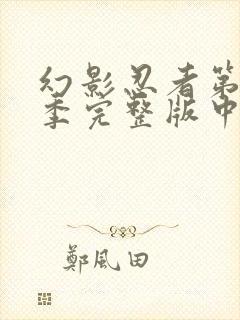 幻影忍者第
季完整版中
鄭風田